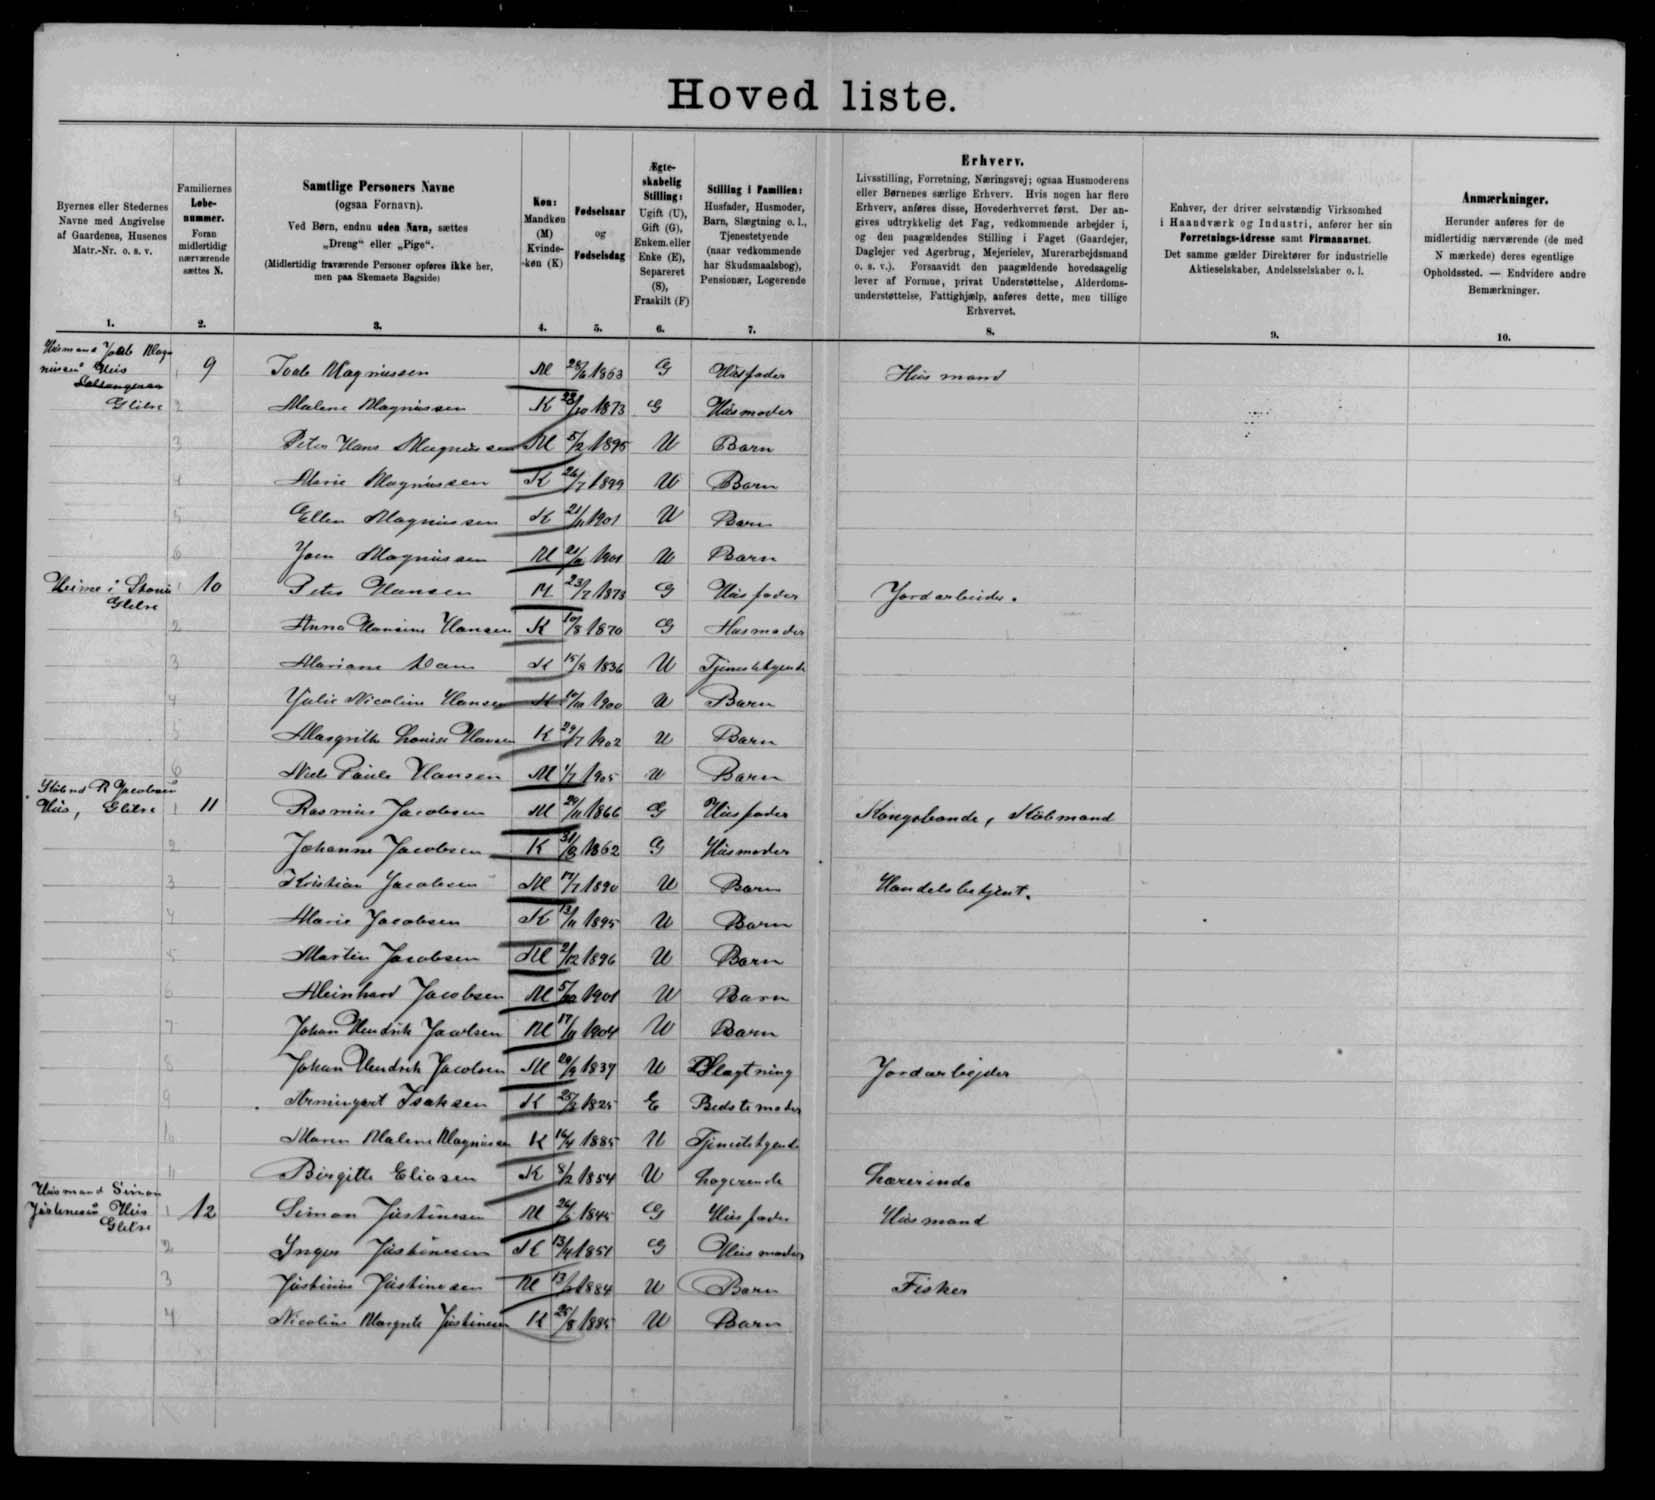 Hoved liste.
Byernes eller Stedernes Navne med Angivelse af Gaardenes, Husenes Matr.-Nr. o. s. v.
Familiernes Løbe-nummer. Foran midlertidig nærværende sættes N.
Samtlige Personers Navne (ogsaa Fornavn). Ved Børn, endnu uden Navn, sættes „Dreng“ eller „Pige“. (Midlertidig fraværende Personer opføres ikke her, men paa Skemaets Bagside)
Køn: Mandkøn (M) Kvinde-køn (K)
Fødselsaar og Fødselsdag
Ægte-skabelig Stilling: Ugift (U), Gift (G), Enkem. eller Enke (E), Separeret (S), Fraskilt (F)
Stilling i Familien: Husfader, Husmoder, Barn, Slægtning o. l., Tjenestetyende (naar vedkommende har Skudsmaalsbog), Pensionær, Logerende
Erhverv. Livsstilling, Forretning, Næringsvej; ogsaa Husmoderens eller Børnenes særlige Erhverv. Hvis nogen har flere Erhverv, anføres disse, Hovederhvervet først. Der an-gives udtrykkelig det Fag, vedkommende arbejder i, og den paagældendes Stilling i Faget (Gaardejer, Daglejer ved Agerbrug, Mejerielev, Murerarbejdsmand o. s. v.). Forsaavidt den paagældende hovedsagelig lever af Formue, privat Understøttelse, Alderdoms-understøttelse, Fattighjælp, anføres dette, men tillige Erhvervet.
Enhver, der driver selvstændig Virksomhed i Haandværk og Industri, anfører her sin Forretnings-Adresse samt Firmanavnet. Det samme gælder Direktører for industrielle Aktieselskaber, Andelsselskaber o. l.
Anmærkninger. Herunder anføres for de midlertidig nærværende (de med N mærkede) deres egentlige Opholdssted. — Endvidere andre Bemærkninger.
1. 2. 3. 4. 5. 6. 7. 8. 9. 10.
Husmand Joab Magnussens Hus Glibre 1 9 Joab Magnussen M 1863 G Husfader Husmand
2 Malene Magnussen K 23/10 1873 G Husmoder
3 Peter Hans Magnussen M 5/2 1895 U Barn
4 Marie Magnussen K 26/7 1899 U Barn
5 Ellen Magnussen K 21/11 1901 U Barn
6 Magnussen M U Barn
Heime i Glibre 1 10 Peter Hansen M 23/7 1873 G Husfader Jordarbeider.
2 Anna Hansine Hansen K 10/8 1870 G Husmoder
3 Mariane Dam K 15/8 1836 U Tjenestetyende
4 Julie Nicoline Hansen K 1900 U Barn
5 Margrethe Louise Hansen K 29/7 1902 U Barn
6 Niels Paule Hansen M 1/7 1905 U Barn
Købmd R Jacobsens Hus, Glibre 1 11 Rasmus Jacobsen M 29/11 1866 G Husfader Kongsbonde, Købmand
2 Johanne Jacobsen K 31/8 1862 G Husmoder
3 Kristian Jacobsen M 17/7 1890 U Barn Handelsbetjent.
4 Marie Jacobsen K 13/11 1895 U Barn
5 Martin Jacobsen M 2/12 1896 U Barn
6 Meinhard Jacobsen M 1901 U Barn
7 Johan Hendrik Jacobsen M 17/11 1904 U Barn
8 Johan Hendrik Jacobsen M 29/9 1837 U Slegtning Jordarbejder
9 Armingart Isaksen K 1825 E Bedstemoder
10 Maren Malene Magnussen K 16/4 1885 U Tjenestetyende
11 Birgitte Eliasen K 8/2 1854 U Logerende Lærerinde
Husmand Simon Justinesens Hus Glibre 1 12 Simon Justinesen M 1845 G Husfader Husmand
2 Inger Justinesen K 13/4 1851 G Husmoder
3 Justinus Justinesen M 1884 U Barn Fisker
4 Margrete Justinesen K 25/8 1885 U Barn